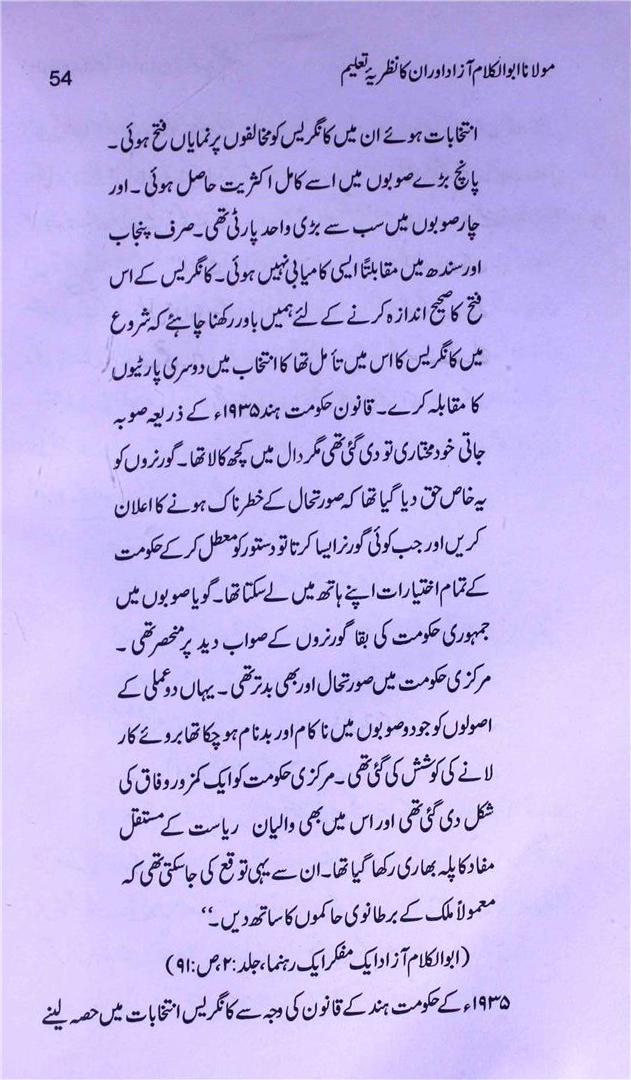 مولانا ابوالکلام آزاد اور ان کا نظریۂ تعلیم
54
انتخابات ہوئے ان میں کانگریس کو مخالفوں پر نمایاں فتح ہوئی ۔
پانچ بڑے صوبوں میں اسے کامل اکثریت حاصل ہوئی ۔ اور
چار صوبوں میں سب سے بڑی واحد پارٹی تھی ۔ صرف پنجاب
اور سندھ میں مقابلتاً ایسی کامیابی نہیں ہوئی ۔ کانگریس کے اس
فتح کا صحیح اندازہ کرنے کے لئے ہمیں باور رکھنا چاہئے کہ شروع
میں کانگریس کا اس میں تأمل تھا کا انتخاب میں دوسری پارٹیوں
کا مقابلہ کرے ۔ قانون حکومت ہند ۱۹۳۵ء کے ذریعہ صوبہ
جاتی خود مختاری تو دی گئی تھی مگر دال میں کچھ کالا تھا ۔ گورنروں کو
یہ خاص حق دیا گیا تھا کہ صورتحال کے خطرناک ہونے کا اعلان
کریں اور جب کوئی گورنر ایسا کرتا تو دستور کو معطل کر کے حکومت
کے تمام اختیارات اپنے ہاتھ میں لے سکتا تھا ۔ گویا صوبوں میں
جمہوری حکومت کی بقا گورنروں کے صواب دید پر منحصر تھی ۔
مرکزی حکومت میں صورتحال اور بھی بدتر تھی ۔ یہاں دو عملی کے
اصولوں کو جو دو صوبوں میں ناکام اور بدنام ہو چکا تھا بروئے کار
لانے کی کوشش کی گئی تھی ۔ مرکزی حکومت کو ایک کمزور وفاق کی
شکل دی گئی تھی اور اس میں بھی والیان ریاست کے مستقل
مفاد کا پلہ بھاری رکھا گیا تھا ۔ ان سے یہی توقع کی جا سکتی تھی کہ
معمولاً ملک کے برطانوی حاکموں کا ساتھ دیں ۔“
(ابوالکلام آزاد ایک مفکر ایک رہنما، جلد:۲،ص:۹۱)
۱۹۳۵ء کے حکومت ہند کے قانون کی وجہ سے کانگریس انتخابات میں حصہ لینے